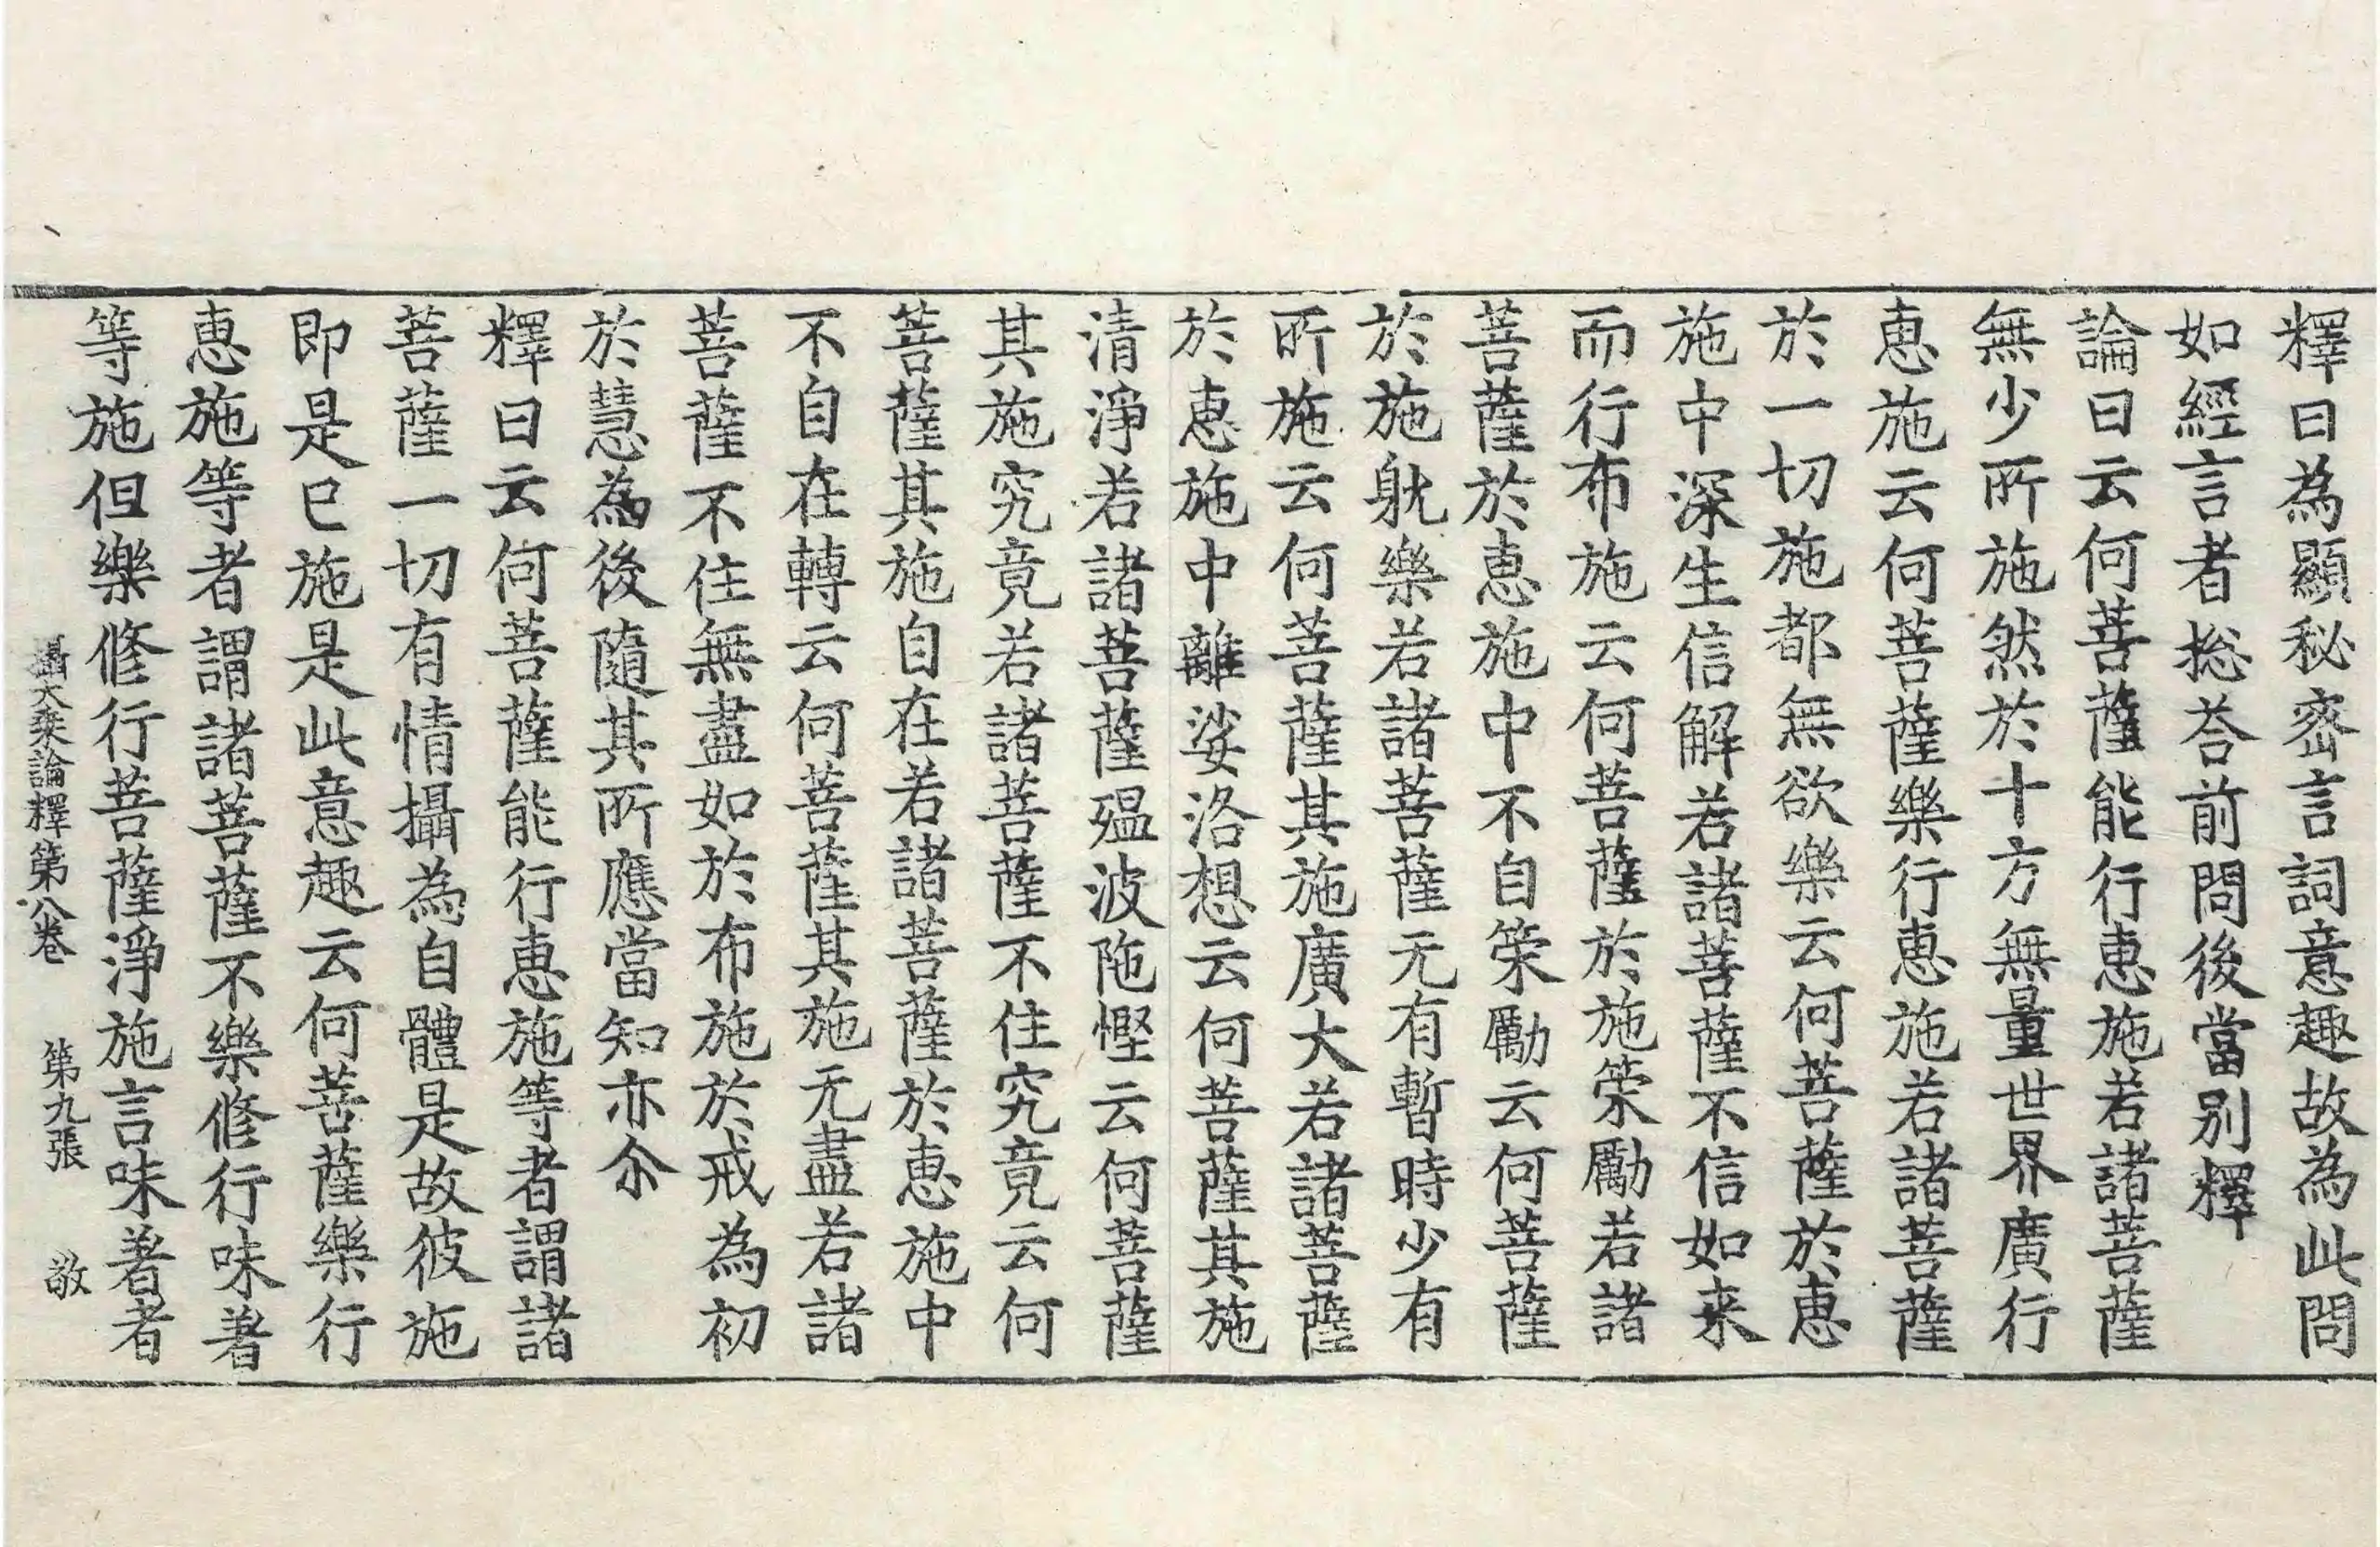 釋曰為顯秘密言詞意趣故為此問
如經言者捴荅前問後當别釋
論曰云何菩薩能行惠施若諸菩薩
無少所施然於十方無量世界廣行
惠施云何菩薩樂行惠施若諸菩薩
於一切施都無欲樂云何菩薩於惠
施中深生信解若諸菩薩不信如来
而行布施云何菩薩於施策勵若諸
菩薩於惠施中不自策勵云何菩薩
於施躭樂若諸菩薩无有暫時少有
所施云何菩薩其施廣大若諸菩薩
於惠施中離娑洛想云何菩薩其施
清淨若諸菩薩殟波陁慳云何菩薩
其施究竟若諸菩薩不住究竟云何
菩薩其施自在若諸菩薩於惠施中
不自在轉云何菩薩其施无盡若諸
菩薩不住無盡如於布施於戒為初
於慧為後隨其所應當知亦尒
釋曰云何菩薩能行惠施等者謂諸
菩薩一切有情攝為自體是故彼施
即是已施是此意趣云何菩薩樂行
惠施等者謂諸菩薩不樂修行味著
等施但樂修行菩薩淨施言味著者
攝大乘論釋第八卷 第九張 敬